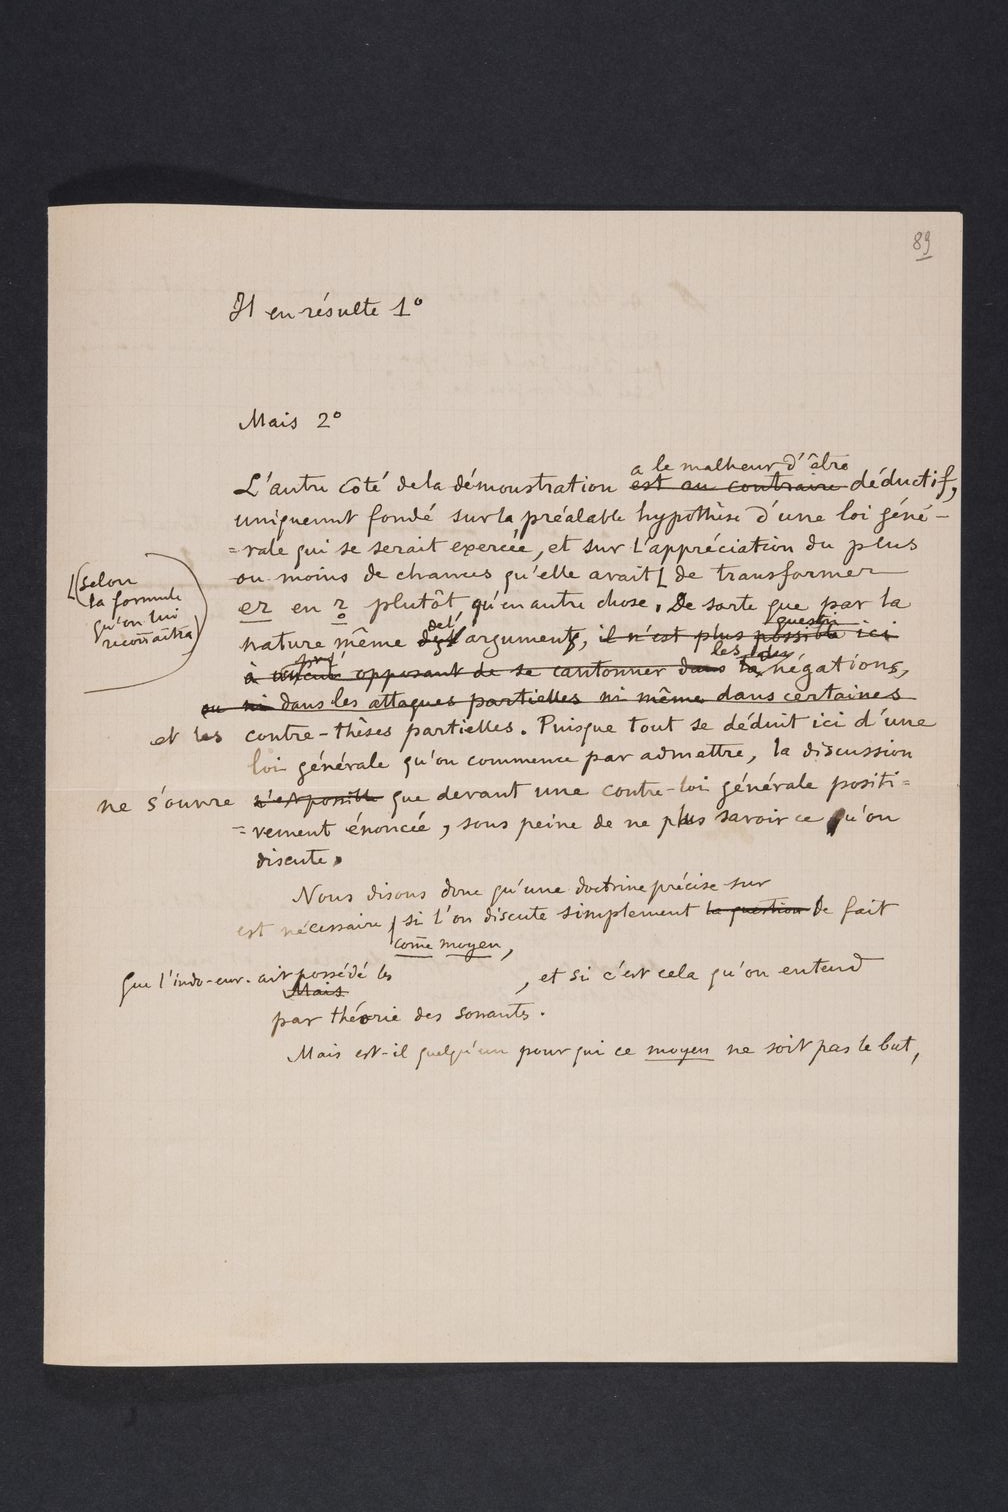 89
Il en résulte 1°
Mais 2°
a le malheur d'être
L'autre côté de la démonstration est au contraire déductif,
uniquement fondé sur la préalable hypothèse d'une loi géné-
=rale qui se serait exercée, et sur l'appréciation du plus
ou moins de chances qu'elle avait [ de transformer
[(selon
la formule
qu'on lui
reconnaîtra)
er en r̥ plutôt qu'en autre chose. De sorte que par la
question
nature même de l'argument, il n'est plus possible ici
les
à aucun opposant de se cantonner dans la négations,
ou ni dans les attaques partielles ni même dans certaines
et les contre-thèses partielles. Puisque tout se déduit ici d'une
loi générale qu'on commence par admettre, la discussion
ne s'ouvre n'est possible que devant une contre-loi générale positi=
=vement énoncée, sous peine de ne plus savoir ce qu'on
discute.
Nous disons donc qu'une doctrine précise sur
est nécessaire, si l'on discute simplement la question de fait
com̄e moyen,
que l'indo-eur. ait possédé les , et si c'est cela qu'on entend
Mais
par théorie des sonantes.
Mais est-il quelqu'un pour qui ce moyen ne soit pas le but,